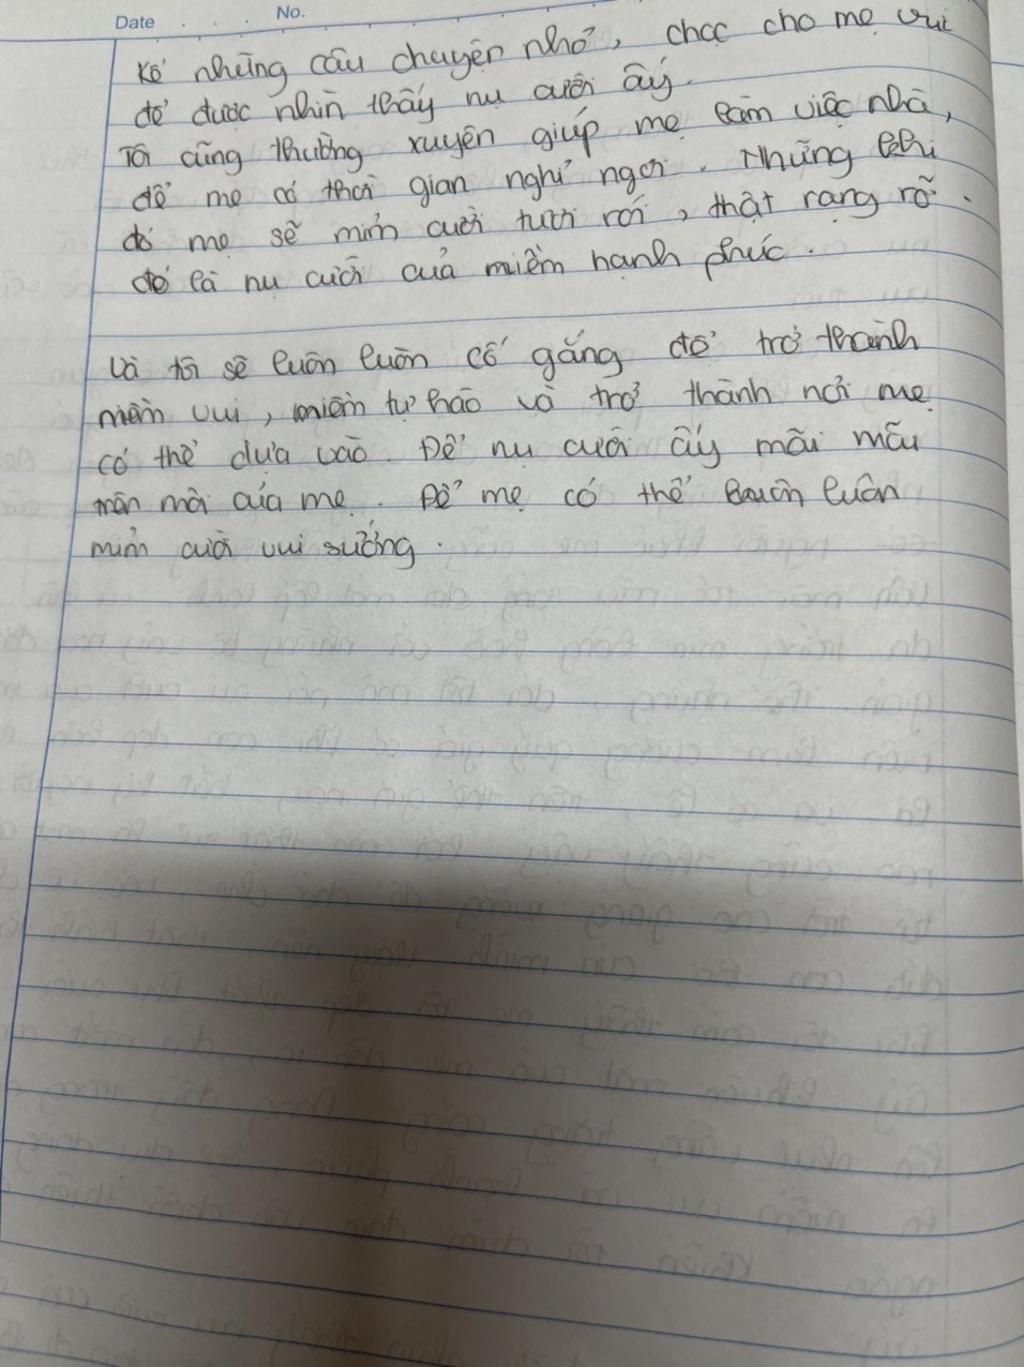 Date No.
Kể những câu chuyện nhỏ, chọc cho mẹ vui
để được nhìn thấy nụ cười ấy.
Tôi cũng thường xuyên giúp mẹ làm việc nhà,
để mẹ có thời gian nghỉ ngơi. Những khi
đó mẹ sẽ mỉm cười tươi rói, thật rạng rỡ.
đó là nụ cười của miềm hạnh phúc.
Và tôi sẽ luôn luôn cố gắng để trở thành
niềm vui, miềm tự hào và trở thành nơi mẹ
có thể dựa vào. Để nụ cười ấy mãi mãi
trên môi của mẹ. Để mẹ có thể luôn luôn
mỉm cười vui sướng.